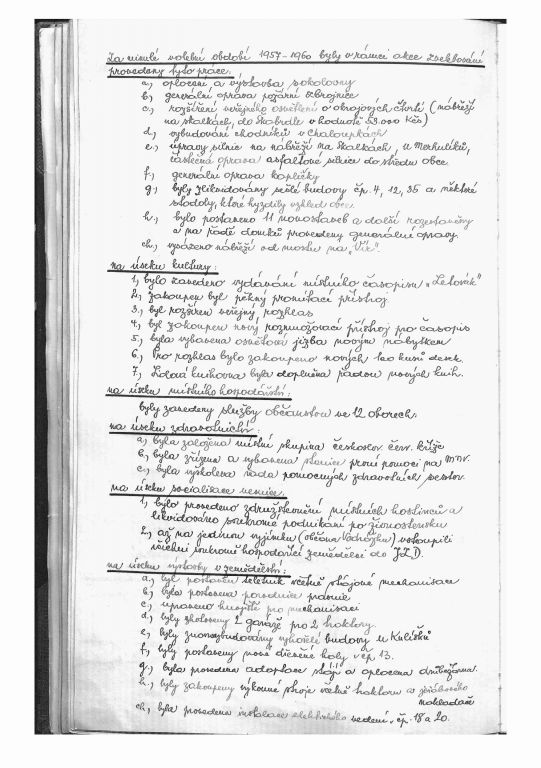 Za minulé volební období 1957-1960 byly v rámci akce zvelebování
provedeny tyto práce:
a, oplocení a výstavba sokolovny
b, generální oprava požární zbrojnice
c, rozšíření veřejného osvětlení v okrajových čtvrtí (nábřeží
na skalkách, do Škabrdle v hodnotě 53.000 Kčs)
d, vybudování chodníků v Chaloupkách
e, úpravy silnic na nábřeží na Skalkách, u Merhulíků,
částečná oprava asfaltové silnice do středu obce
f, generální oprava kapličky
g, byly zlikvidovány sešlé budovy čp. 4, 12, 35 a některé
stodoly, které hyzdily vzhled obce.
h, bylo postaveno 11 novostaveb a další rozestavěny
a na řadě domků provedeny generální opravy.
ch, vysázeno nábřeží od mostu na „Vír“.
na úseku kultury:
1, bylo zavedeno vydávání místního časopisu „Letovák“
2, zakoupen byl pěkný promítací přístroj
3, byl rozšířen veřejný rozhlas
4, byl zakoupen nový rozmnožovací přístroj pro časopis
5, byla vybavena osvětová jizba novým nábytkem
6, Pro rozhlas bylo zakoupeno nových 120 kusů desek.
7, Lidová knihovna byla doplněna řadou nových knih.
na úseku místního hospodářství:
byly zavedeny služby občanstvu ve 12 oborech.
na úseku zdravotnictví:
a, byla založena místní skupina českoslov. červ. kříže
b, byla zřízena a vybavena stanice první pomoci na MNV.
c, byla vyškolena řada pomocných zdravotních sester.
na úseku socialisace vesnice.
1, bylo provedeno združstevnění místních hostinců a
likvidováno soukromé podnikání po živnostensku
2, až na jedinou vyjímku (občana Vodičku) vstoupili
všichni soukromě hospodařící zemědělci do JZD.
na úseku výstavby v zemědělství:
a, byl postaven teletník včetně stájové mechanisace
b, byla postavena porodnice prasnic
c, upraveno hnojiště pro mechanisaci
d, byly zhotoveny 2 garáže pro 2 traktory.
e, byly znovuvybudovány vyhořelé budovy u Kulišků
f, byly postaveny nové dřevěné koly v čp. 13.
g, byla provedena adaptace stájí a oplocena drůbežárna.
h, byly zakoupeny výkonné stroje včetně traktoru a jeřábového
nakladače
ch, byla provedena instalace elektrického vedení v čp. 18 a 20.